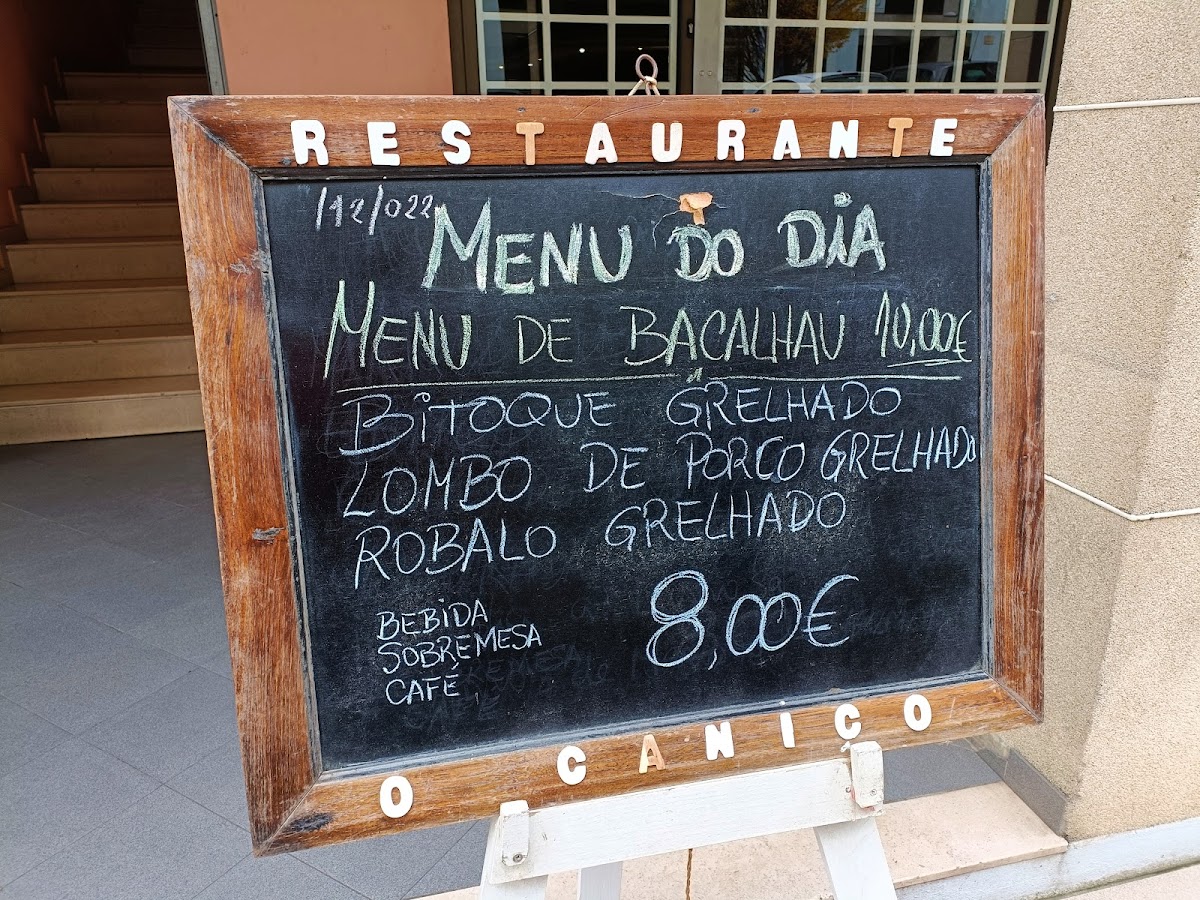 RESTAURANTE
/12/022
MENU DO DIA
MENU DE BACALHAU 10,00€
BITOQUE GRELHADO
LOMBO DE PORCO GRELHADO
ROBALO GRELHADO
BEBIDA
SOBREMESA
CAFÉ
8,00€
O CANICO